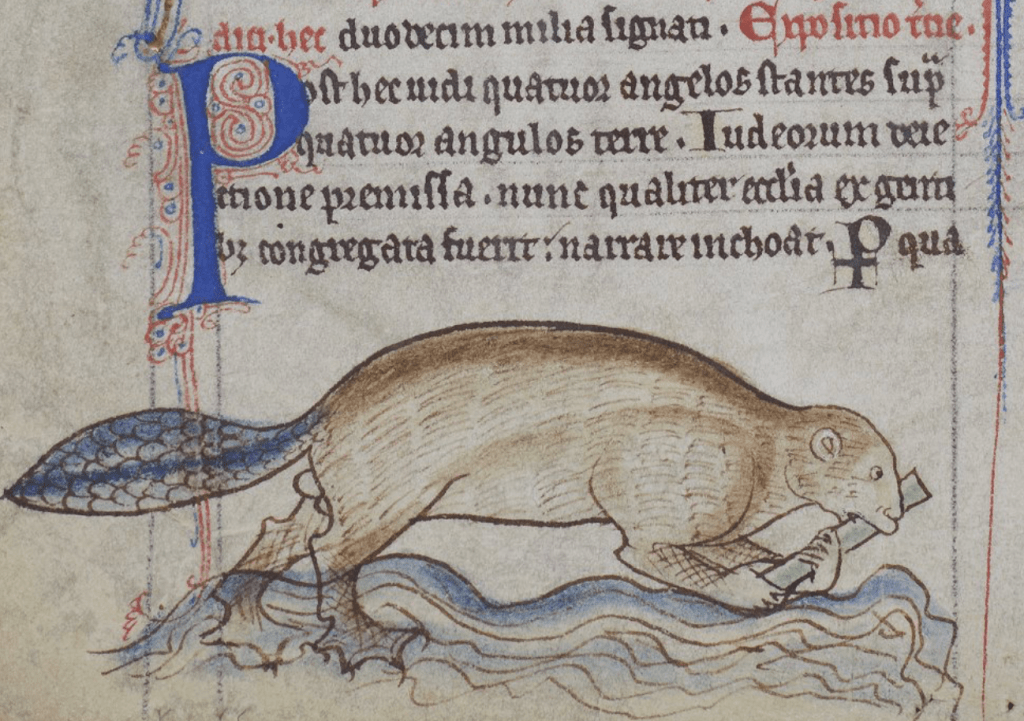 hec duodecim milia signati . Expositio
Post hec uidi quatuor angelos stantes sup̄
quatuor angulos terre . Iudeorum deie
ctione premissa . nunc qualiter eccl'ia ex genti
bꝫ congregata fuerit : narrare inchoat . P qua